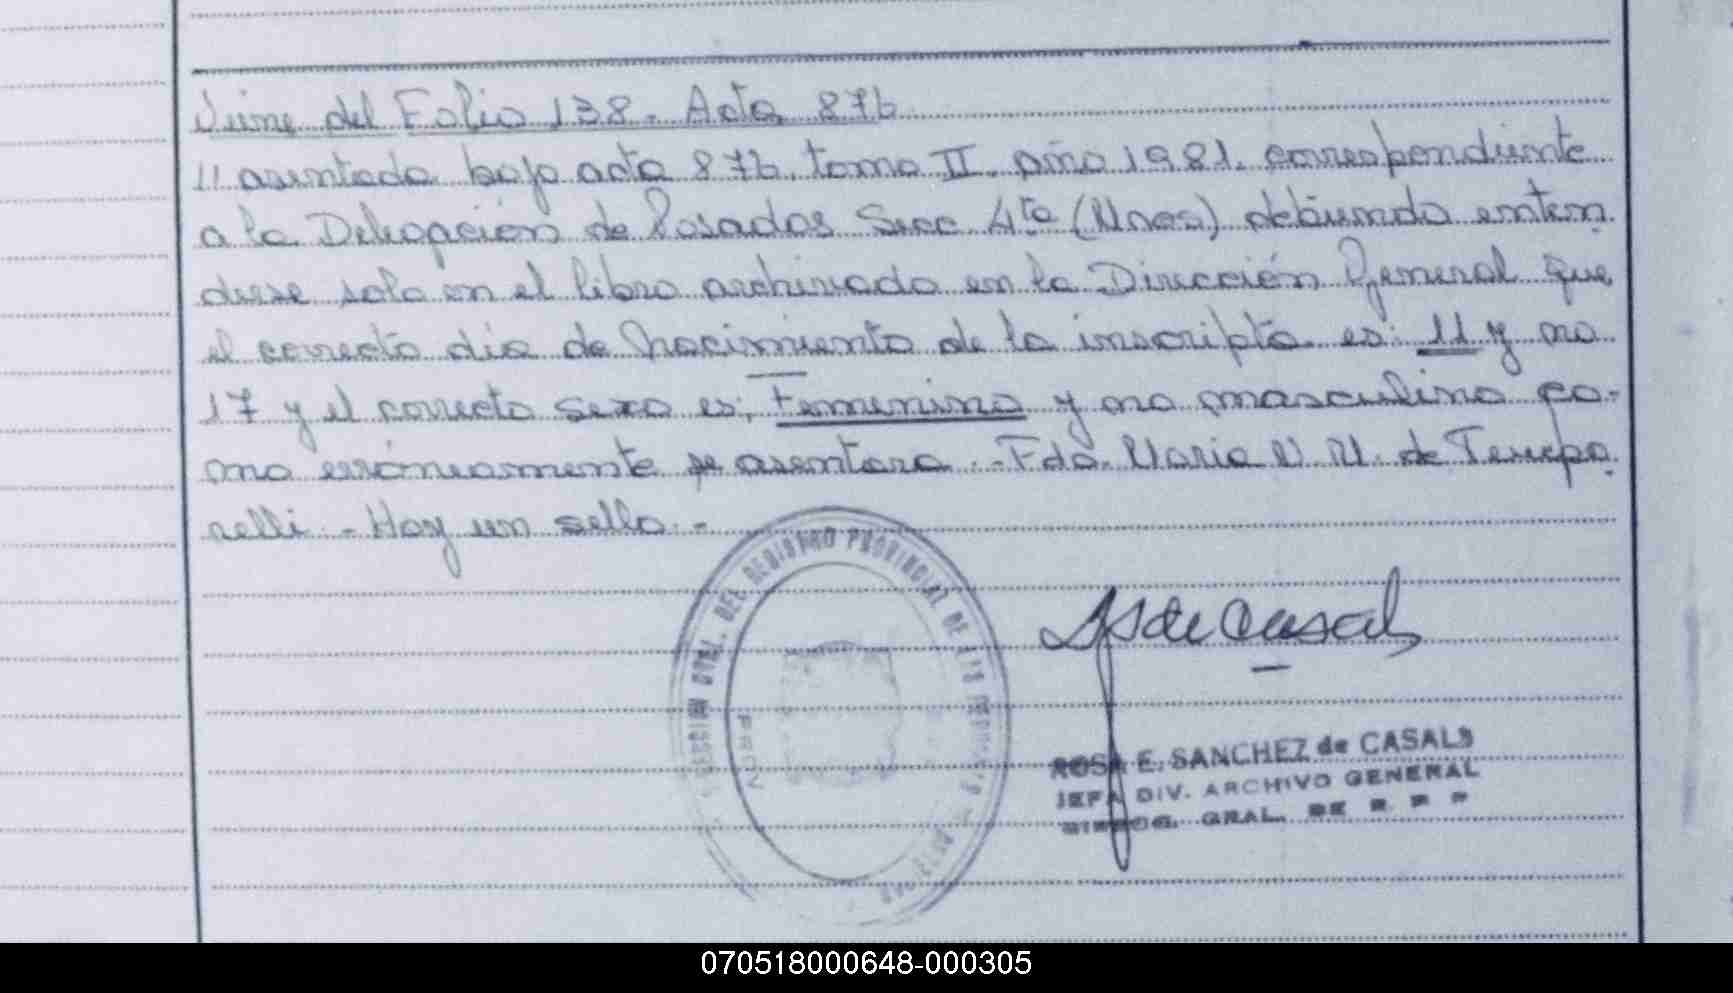 Viene del Folio 138. Acta 876
// asentada bajo acta 876, tomo II, año 1981, correspondiente
a la Delegación de Posadas Secc 4ta (Unas) debiendo enten-
derse solo en el libro archivado en la Dirección General que
el correcto dia de nacimiento de la inscripta es: 11 y no
17 y el correcto sexo es; Femenino y no masculino co-
mo erróneamente se asentara.- Fdo. Maria U. de
relli - Hay un sello.-
DEL REGISTRO PROVINCIAL DE LAS PERSONAS
PROV
S de Casals
ROSA E. SANCHEZ de CASALS
JEFA DIV. ARCHIVO GENERAL
DIRECC. GRAL. DE R. P. P
070518000648-000305